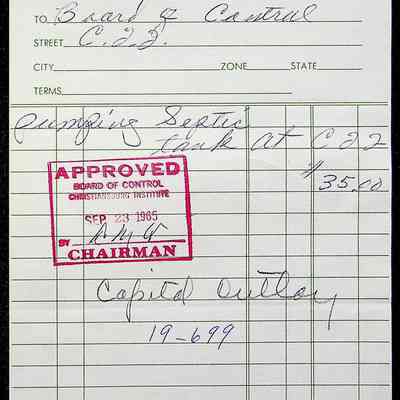 TO Board of Control
STREET C.I.I.
CITY ZONE STATE
TERMS
pumping Septic
tank at C I I
$35.00
APPROVED
BOARD OF CONTROL
CHRISTIANSBURG INSTITUTE
SEP 23 1965
BY
CHAIRMAN
Capital Outlay
19-699